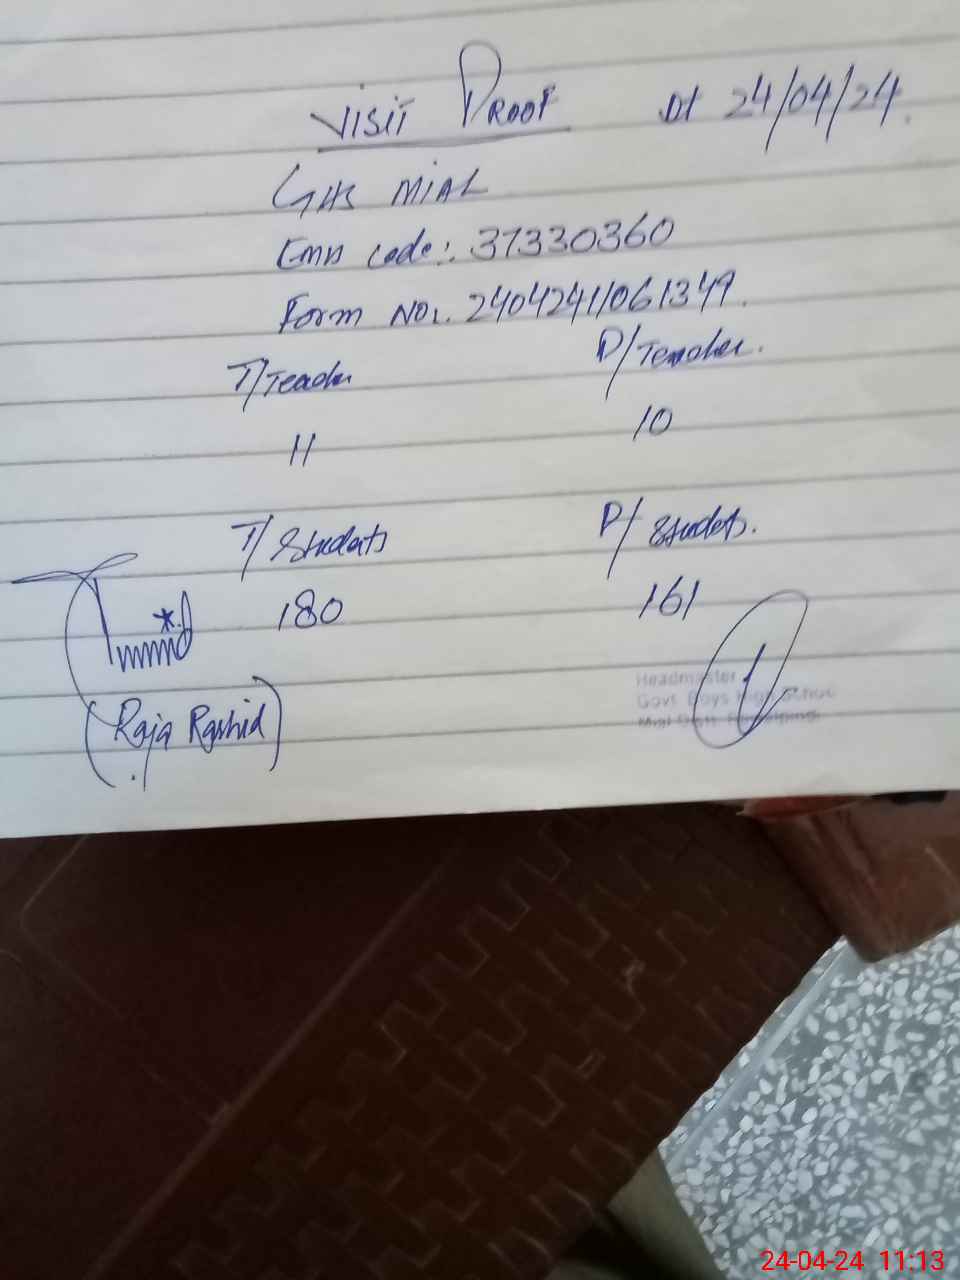 VISIT PROOF Dt 24/04/24.
GHS MIAL
Emis code:. 37330360
Form No:. 24042411061349.
T/Teacher P/Teacher.
11 10
T/Students P/Students.
180 161
(Raja Rashid)
Headmaster
Govt Boys High School
Mial Distt Rawalpindi
24-04-24 11:13